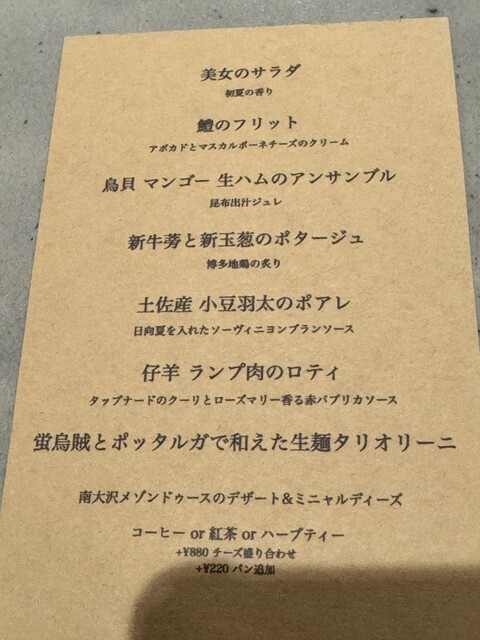 美女のサラダ
初夏の香り
鱧のフリット
アボカドとマスカルポーネチーズのクリーム
鳥貝 マンゴー 生ハムのアンサンブル
昆布出汁ジュレ
新牛蒡と新玉葱のポタージュ
博多地鶏の炙り
土佐産 小豆羽太のポアレ
日向夏を入れたソーヴィニヨンブランソース
仔羊 ランプ肉のロティ
タップナードのクーリとローズマリー香る赤パプリカソース
蛍烏賊とボッタルガで和えた生麺タリオリーニ
南大沢メゾンドゥースのデザート&ミニャルディーズ
コーヒー or 紅茶 or ハーブティー
+¥880 チーズ盛り合わせ
+¥220 パン追加